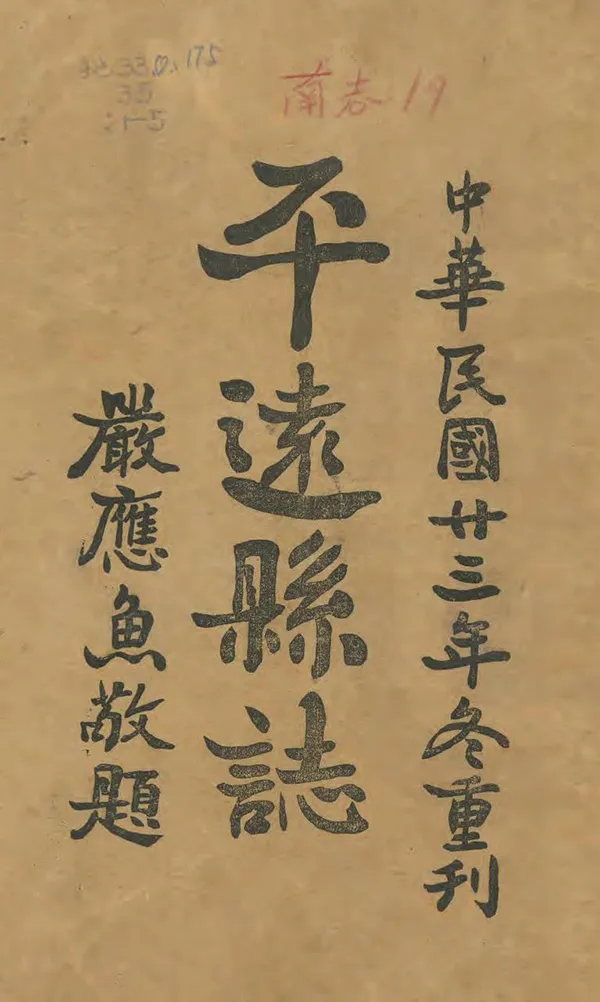 中華民國廿三年冬重刊
平遠縣誌
嚴應魚敬題
南志19